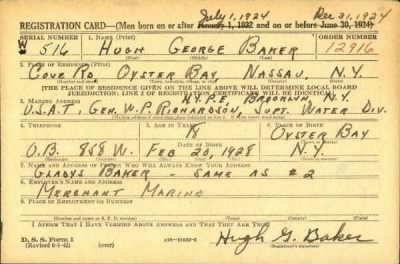 July 1, 1924 Dec 31, 1924
REGISTRATION CARD—(Men born on or after January 1, 1922 and on or before June 30, 1924)
SERIAL NUMBER 1. NAME (Print) ORDER NUMBER
W 516 HUGH GEORGE BAKER 12916
2. PLACE OF RESIDENCE (Print)
COVE RD. OYSTER BAY, NASSAU, N.Y.
[THE PLACE OF RESIDENCE GIVEN ON THE LINE ABOVE WILL DETERMINE LOCAL BOARD
JURISDICTION; LINE 2 OF REGISTRATION CERTIFICATE WILL BE IDENTICAL]
N.Y.P.E. BROOKLYN, N.Y.
3. MAILING ADDRESS
U.S.A.T. GEN. W.P. RICHARDSON, SUPT. WATER DIV.
4. TELEPHONE 5. AGE IN YEARS 6. PLACE OF BIRTH
18 OYSTER BAY
DATE OF BIRTH
O.B. 858 W. FEB 20, N.Y.
7. NAME AND ADDRESS OF PERSON WHO WILL ALWAYS KNOW YOUR ADDRESS
GLADYS BAKER - SAME AS #2
8. EMPLOYER'S NAME AND ADDRESS
MERCHANT MARINE
9. PLACE OF EMPLOYMENT OR BUSINESS
I AFFIRM THAT I HAVE VERIFIED ABOVE ANSWERS AND THAT THEY ARE TRUE.
D. S. S. Form 1
(Revised 6-1-42) (over)
Hugh G. Baker
(Registrant's signature)